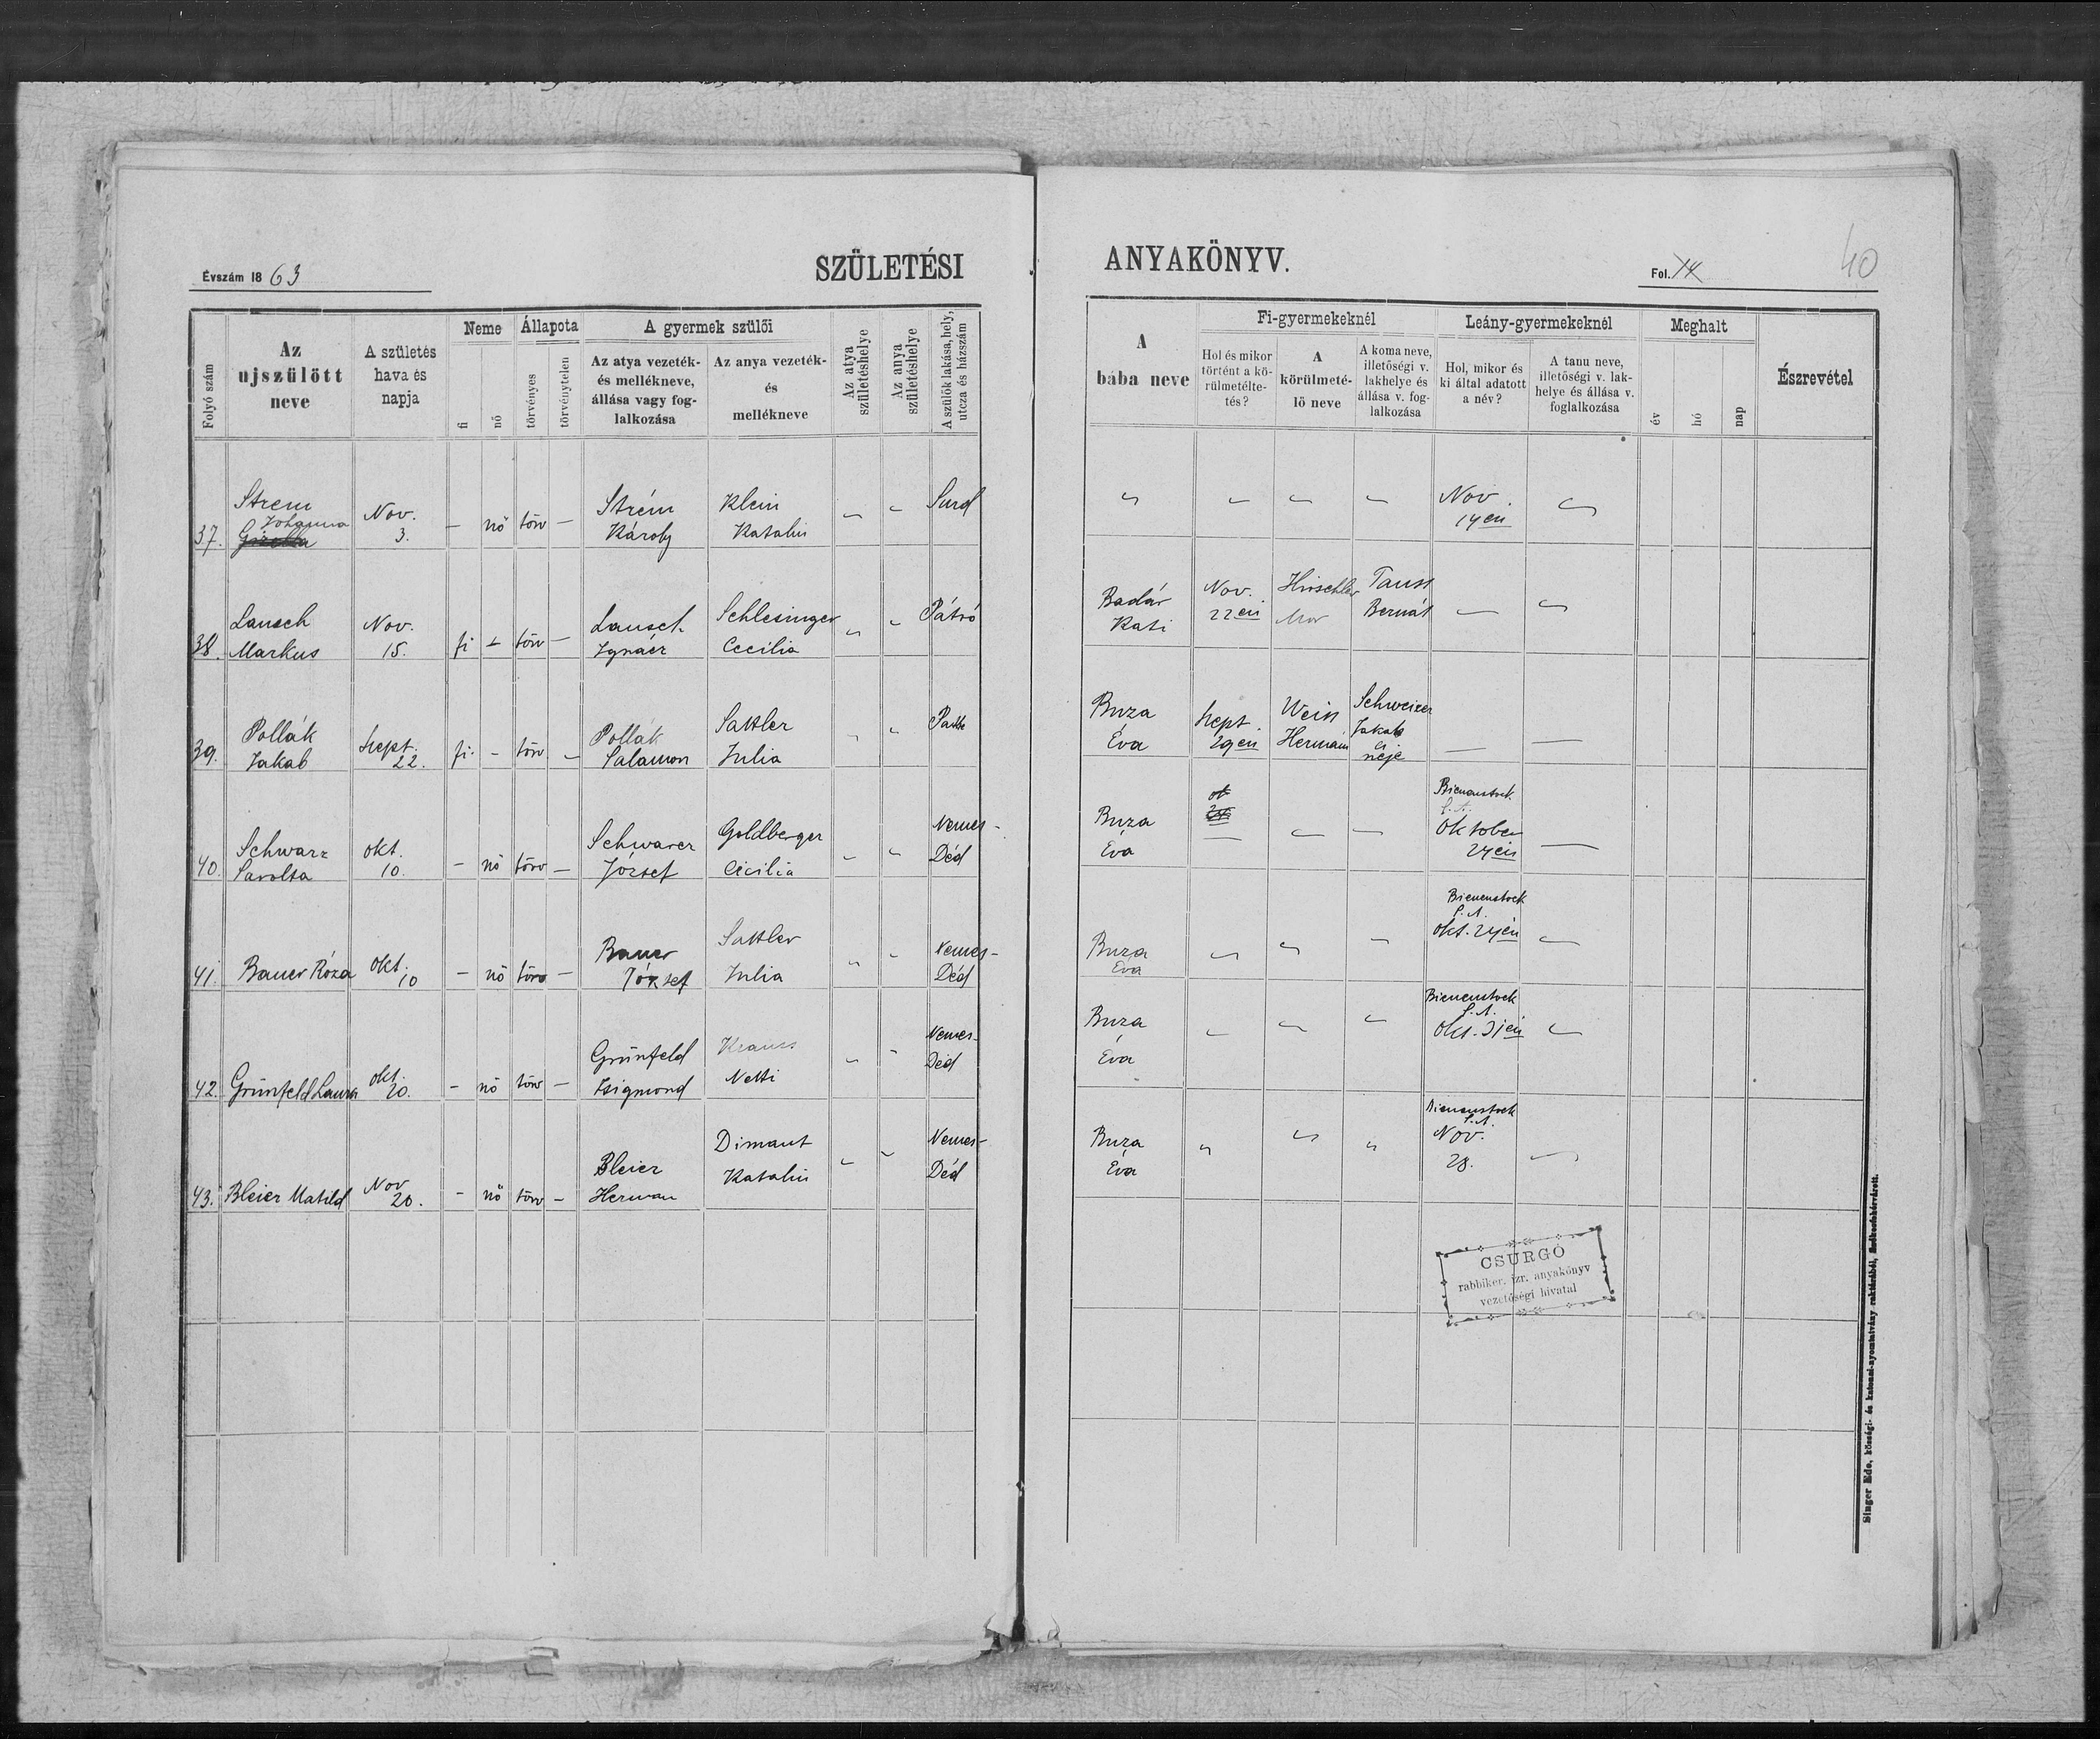 Évszám 1863
SZÜLETÉSI
ANYAKÖNYV.
Fol.
40
Folyó szám
Az ujszülött neve
A születés hava és napja
Neme
fi
nő
Állapota
törvényes
törvénytelen
A gyermek szülői
Az atya vezeték- és mellékneve, állása vagy foglalkozása
Az anya vezeték- és mellékneve
Az atya születéshelye
Az anya születéshelye
A szülők lakása, hely, utcza és házszám
A bába neve
Fi-gyermekeknél
Hol és mikor történt a körülmetéltetés?
A körülmetélő neve
A koma neve, illetőségi v. lakhelye és állása v. foglalkozása
Leány-gyermekeknél
Hol, mikor és ki által adatott a név?
A tanu neve, illetőségi v. lakhelye és állása v. foglalkozása
Meghalt
év
hó
nap
Észrevétel
37. Strem Johanna Gizella Nov. 3. – nő törv – Strém Károly Klein Katalin " " Surd
" " " " Nov. 14en "
38. Lausch Markus Nov. 15. fi – törv – Lausch Ignácz Schlesinger Cecilia " " Pátró
Badár Kati Nov. 22en Hirschler Mor Tauss Bernát – "
39. Pollák Jakab Sept. 22. fi. – törv. – Pollák Salamon Sattler Julia " "
Buza Éva Sept. 29en Weiss Hermann Schweizer Jakab neje – –
40. Schwarz Sarolta okt. 10. – nő törv – Schwarcz József Goldberger Cicilia " " Nemes-Déd
Buza Éva – " – Bienenstock S. A. Oktober 24en –
41. Bauer Róza okt. 10 – nő törv – Bauer József Sattler Julia " " Nemes-Déd
Buza Éva " " – Bienenstock S. A. okt. 24en "
42. Grünfeld Laura okt. 20. – nő törv – Grünfeld Zsigmond Krauss Netti " " Nemes-Déd
Buza Éva " " " Bienenstock S. A. okt. 31en "
43. Bleier Matild Nov 20. – nő törv – Bleier Herman Dimant Katalin " " Nemes-Déd
Buza Éva " " " Bienenstock S. A. Nov. 28. –
CSURGÓ
rabbiker. izr. anyakönyv
vezetőségi hivatal
Singer Ede, községi- és katonai-nyomtatvány raktárából, Székesfehérvárott.